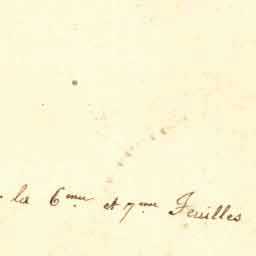 la 6me et 7me Feuilles